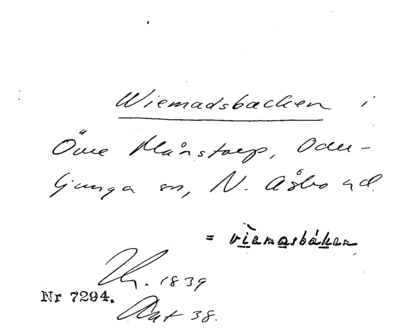 Wiemadsbacken i
Övre Månstorp, Oder-
ljunga sn, N. Åsbo hd.
= viemasbáken
1839
Nr 7294.
38.